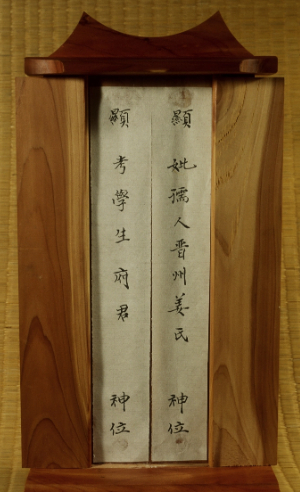 顯妣孺人晋州姜氏神位
顯考學生府君神位